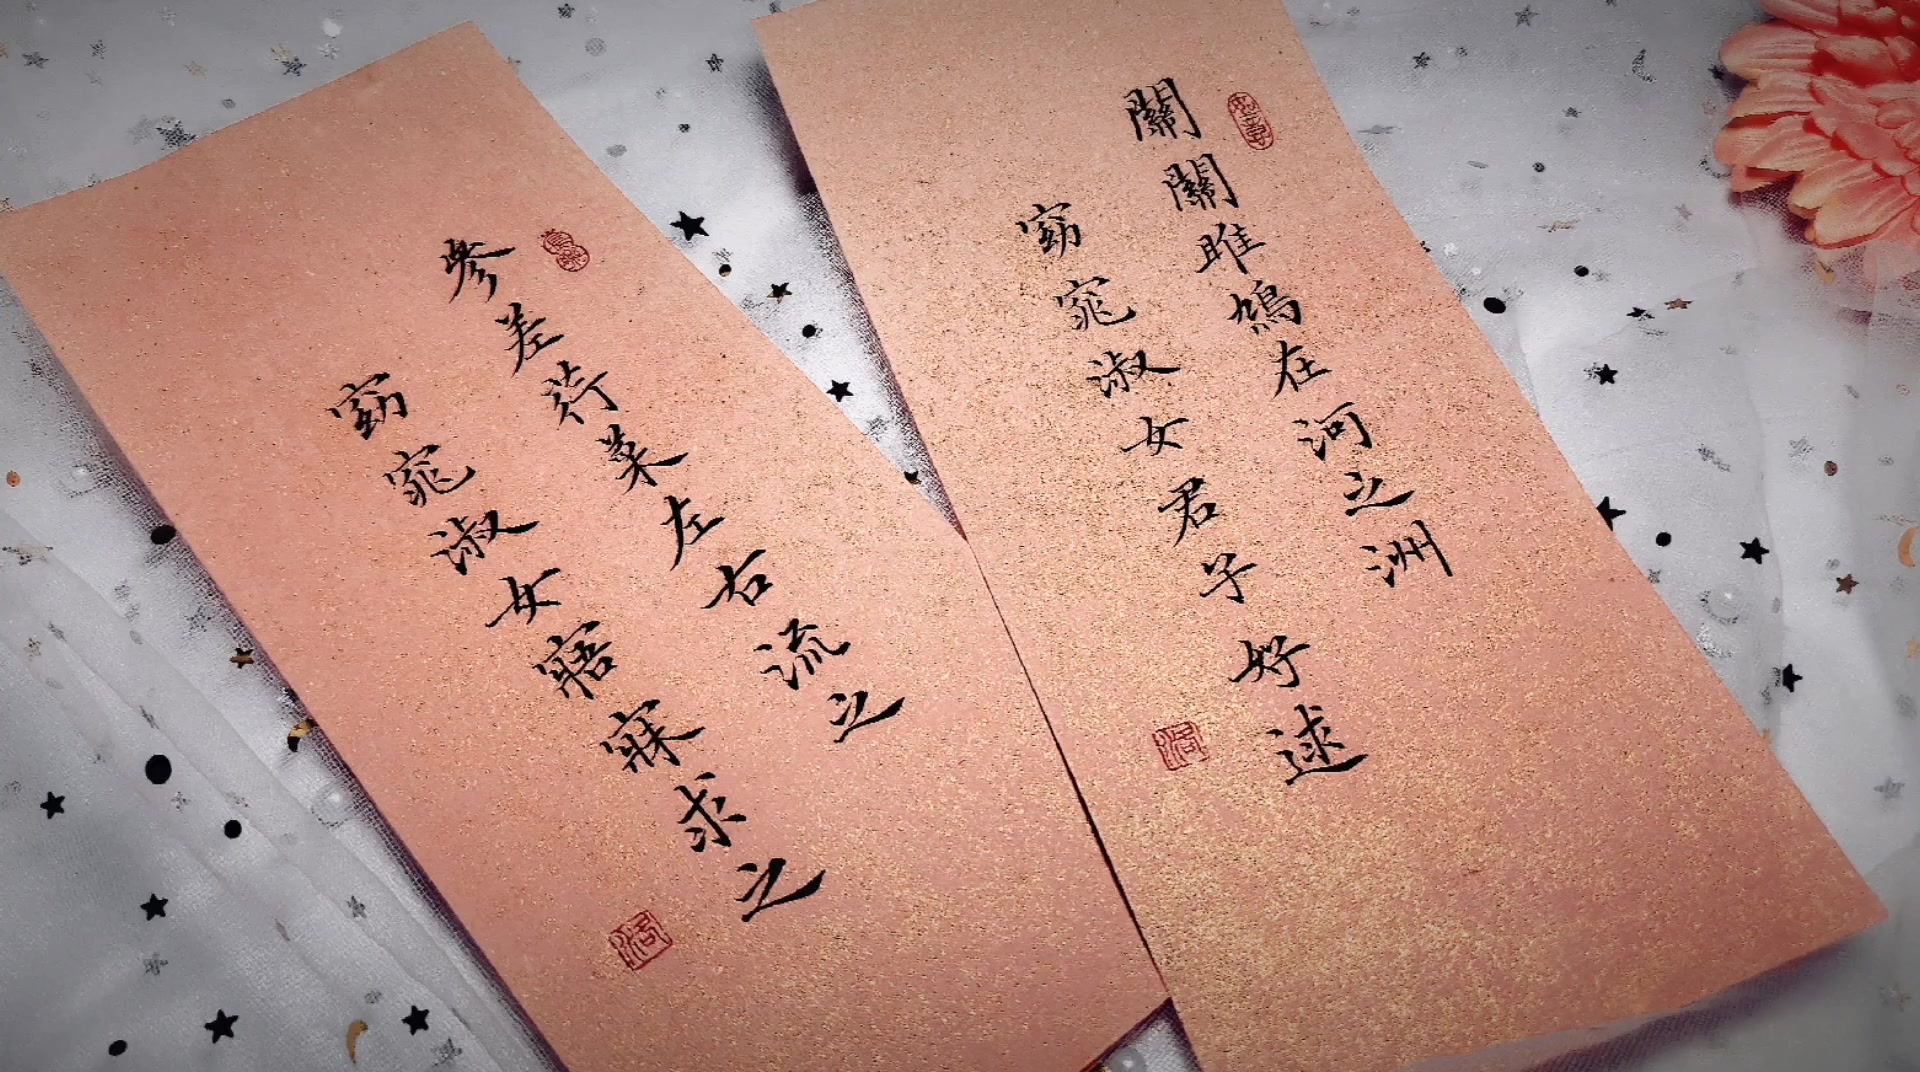 關關雎鳩在河之洲
窈窕淑女君子好逑
參差荇菜左右流之
窈窕淑女寤寐求之